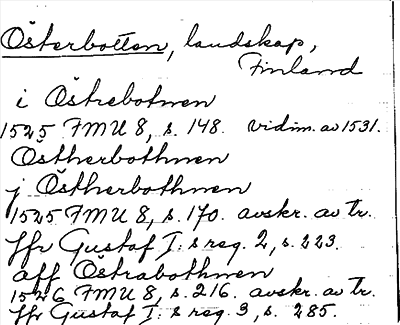 Österbotten, landskap,
Finland
i Östrebotnen
1525 FMU 8, s. 148. vidim. av 1531.
Östherbothnen
j Östherbothnen
1525 FMU 8, s. 170. avskr. av tr.
ffr Gustaf I: s reg. 2, s. 223.
aff Östrabothnen
1526 FMU 8, s. 216. avskr. av tr.
ffr Gustaf I: s reg. 3, s. 285.